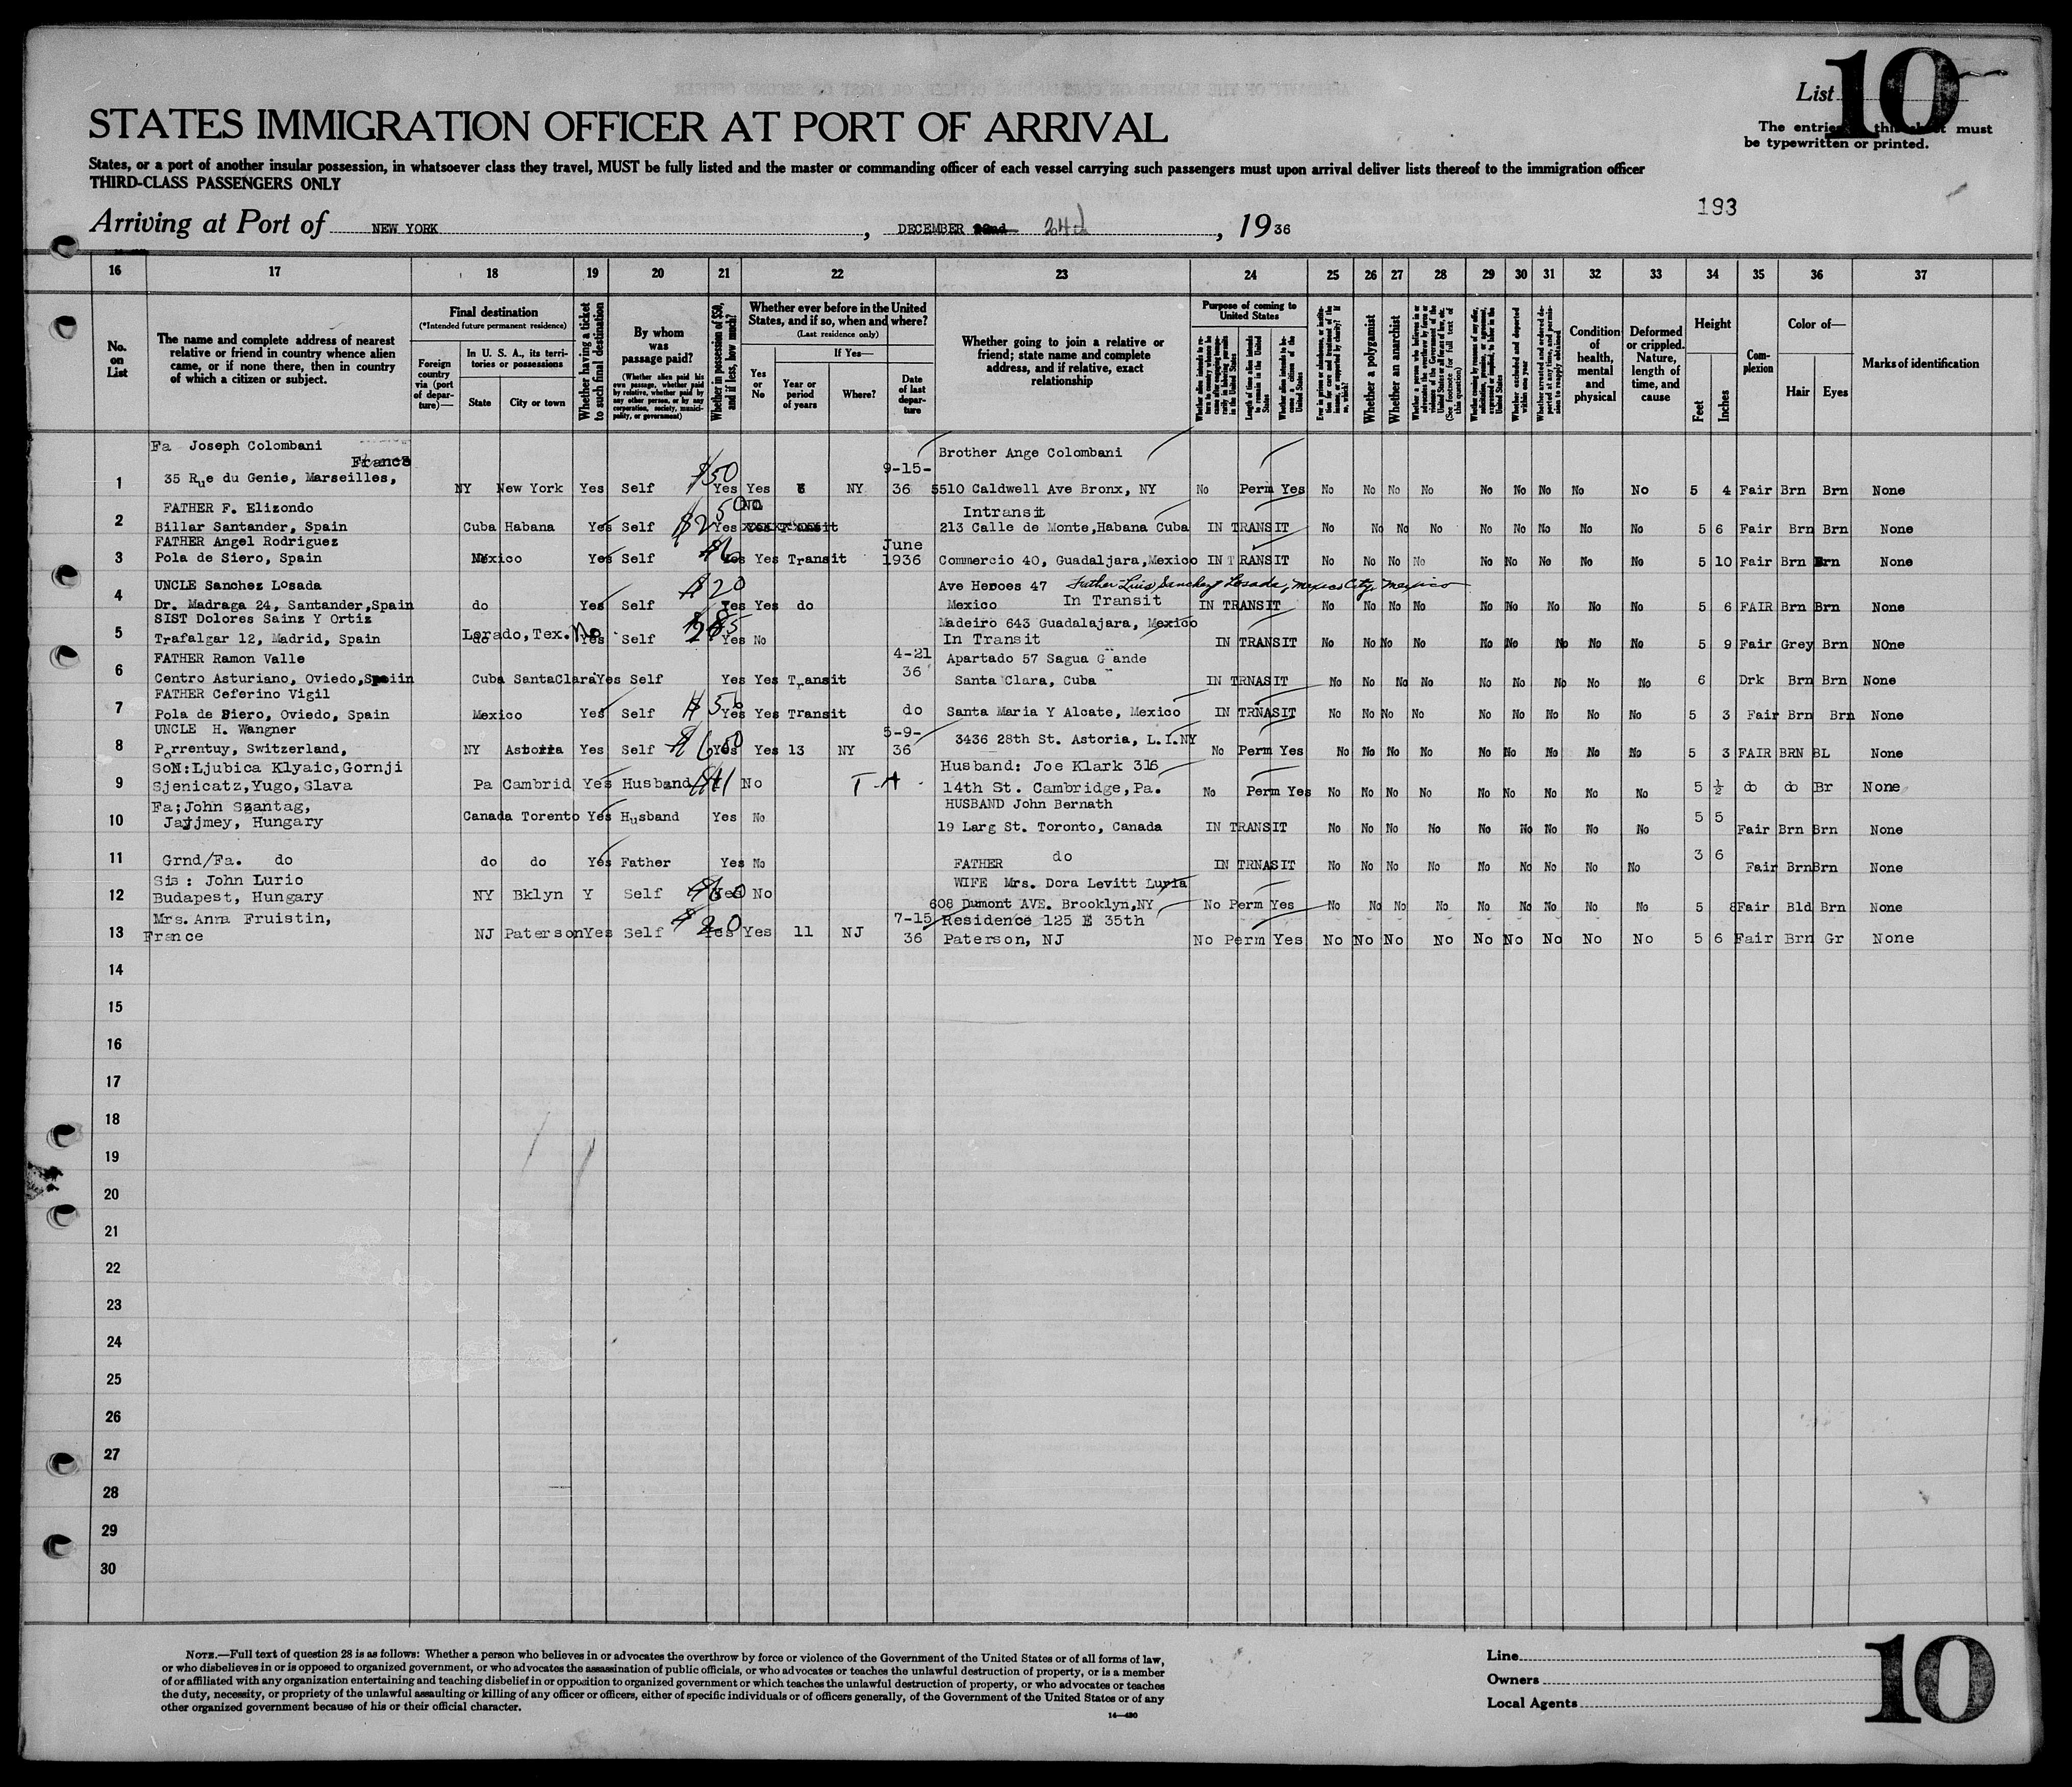 List 10
The entries this sheet must
be typewritten or printed.
STATES IMMIGRATION OFFICER AT PORT OF ARRIVAL
States, or a port of another insular possession, in whatsoever class they travel, MUST be fully listed and the master or commanding officer of each vessel carrying such passengers must upon arrival deliver lists thereof to the immigration officer
THIRD-CLASS PASSENGERS ONLY
193
Arriving at Port of NEW YORK, DECEMBER 22nd 24th, 1936
16 17 18 19 20 21 22 23 24 25 26 27 28 29 30 31 32 33 34 35 36 37
No. on List
The name and complete address of nearest relative or friend in country whence alien came, or if none there, then in country of which a citizen or subject.
Final destination
(*Intended future permanent residence)
Foreign country via (port of departure)—
In U. S. A., its territories or possessions
State
City or town
Whether having a ticket to such final destination
By whom was passage paid?
(Whether alien paid his own passage, whether paid by relative, whether paid by any other person, or by any corporation, society, municipality, or government)
Whether in possession of $50, and if less, how much?
Whether ever before in the United States, and if so, when and where?
(Last residence only)
Yes or No
If Yes—
Year or period of years
Where?
Date of last departure
Whether going to join a relative or friend; state name and complete address, and if relative, exact relationship
Purpose of coming to United States
Length of time alien intends to remain in the United States
Whether alien intends to become a citizen of the United States
Whether a polygamist
Whether an anarchist
(See footnote for full text of this question)
Whether excluded and deported within one year
Whether arrested and ordered deported at any time, and permission to reapply obtained
Condition of health, mental and physical
Deformed or crippled. Nature, length of time, and cause
Height
Feet
Inches
Complexion
Color of—
Hair
Eyes
Marks of identification
Fa Joseph Colombani France 9-15- Brother Ange Colombani
1 35 Rue du Genie, Marseilles, NY New York Yes Self $50 Yes Yes NY 36 5510 Caldwell Ave Bronx, NY No Perm Yes No No No No No No No No No 5 4 Fair Brn Brn None
FATHER F. Elizondo No Intransit
2 Billar Santander, Spain Cuba Habana Yes Self $250 Yes 213 Calle de Monte,Habana Cuba IN TRANSIT No No No No No No No No No 5 6 Fair Brn Brn None
FATHER Angel Rodriguez June
3 Pola de Siero, Spain Mexico Yes Self Yes Yes Transit 1936 Commercio 40, Guadaljara,Mexico IN TRANSIT No No No No No No No No No 5 10 Fair Brn Brn None
UNCLE Sanchez Losada $20 Ave Heroes 47 Father Luis Sanchez Losada, Mexico City, Mexico
4 Dr. Madraga 24, Santander,Spain do Yes Self Yes Yes do Mexico In Transit IN TRANSIT No No No No No No No No No 5 6 FAIR Brn Brn None
SIST Dolores Sainz Y Ortiz Madeiro 643 Guadalajara, Mexico
5 Trafalgar 12, Madrid, Spain Lorado,Tex. No Yes Self Yes No In Transit IN TRANSIT No No No No No No No No No 5 9 Fair Grey Brn NOne
FATHER Ramon Valle 4-21 Apartado 57 Sagua Grande
6 Centro Asturiano, Oviedo,Speiin Cuba SantaClara Yes Self Yes Yes Transit 36 Santa Clara, Cuba IN TRNASIT No No No No No No No No No 6 Drk Brn Brn None
FATHER Ceferino Vigil
7 Pola de Siero, Oviedo, Spain Mexico Yes Self Yes Yes Transit do Santa Maria Y Alcate, Mexico IN TRNASIT No No No No No No No No No 5 3 Fair Brn Brn None
UNCLE H. Wangner 5-9-
8 Porrentuy, Switzerland, NY Astoria Yes Self $650 Yes Yes 13 NY 36 3436 28th St. Astoria, L.I.NY No Perm Yes No No No No No No No No No 5 3 FAIR BRN BL None
SoN:Ljubica Klyaic,Gornji Husband: Joe Klark 316
9 Sjenicatz,Yugo,Slava Pa Cambrid Yes Husband No 14th St. Cambridge, Pa. No Perm Yes No No No No No No No No No 5 ½ do do Br None
Fa;John Szantag, HUSBAND John Bernath
10 Jajjmey, Hungary Canada Torento Yes Husband Yes No 19 Larg St. Toronto, Canada IN TRANSIT No No No No No No No No No 5 5 Fair Brn Brn None
11 Grnd/Fa. do do do Yes Father Yes No FATHER do IN TRNASIT No No No No No No No No No 3 6 Fair Brn Brn None
Sis: John Lurio WIFE Mrs. Dora Levitt Luria
12 Budapest, Hungary NY Bklyn Y Self Yes No 608 Dumont AVE. Brooklyn,NY No Perm Yes No No No No No No No No No 5 8 Fair Bld Brn None
Mrs. Anna Fruistin, $20 7-15 Residence 125 E 35th
13 France NJ Paterson Yes Self Yes Yes 11 NJ 36 Paterson, NJ No Perm Yes No No No No No No No No No 5 6 Fair Brn Gr None
14
15
16
17
18
19
20
21
22
23
24
25
26
27
28
29
30
NOTE.—Full text of question 28 is as follows: Whether a person who believes in or advocates the overthrow by force or violence of the Government of the United States or of all forms of law,
or who disbelieves in or is opposed to organized government, or who advocates the assassination of public officials, or who advocates or teaches the unlawful destruction of property, or is a member
of or affiliated with any organization entertaining and teaching disbelief in or opposition to organized government or which teaches the unlawful destruction of property, or who advocates or teaches
the duty, necessity, or propriety of the unlawful assaulting or killing of any officer or officers, either of specific individuals or of officers generally, of the Government of the United States or of any
other organized government because of his or their official character.
14—490
Line
Owners
Local Agents
10